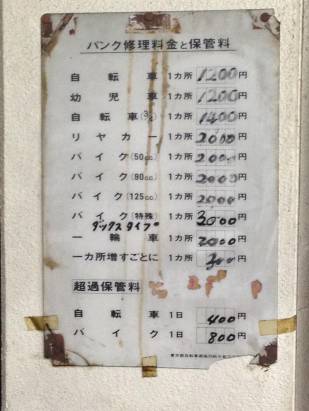 パンク修理料金と保管料
自転車 1カ所 1200円
幼児車 1カ所 1200円
自転車 1カ所 1400円
リヤカー 1カ所 2000円
バイク(50cc) 1カ所 2000円
バイク(80cc) 1カ所 2000円
バイク(125cc) 1カ所 2000円
バイク(特殊) 1カ所 3000円
ダックスタイプ
一輪車 1カ所 2000円
一カ所増すごとに 1カ所 300円
超過保管料
自転車 1日 400円
バイク 1日 800円